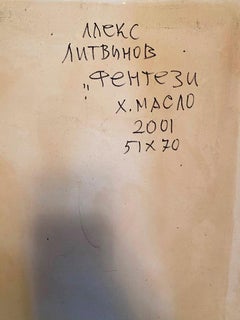 АЛЕКС
ЛИТВИНОВ
„ФЕНТЕЗИ
Х. МАСЛО
2001
51 X 70